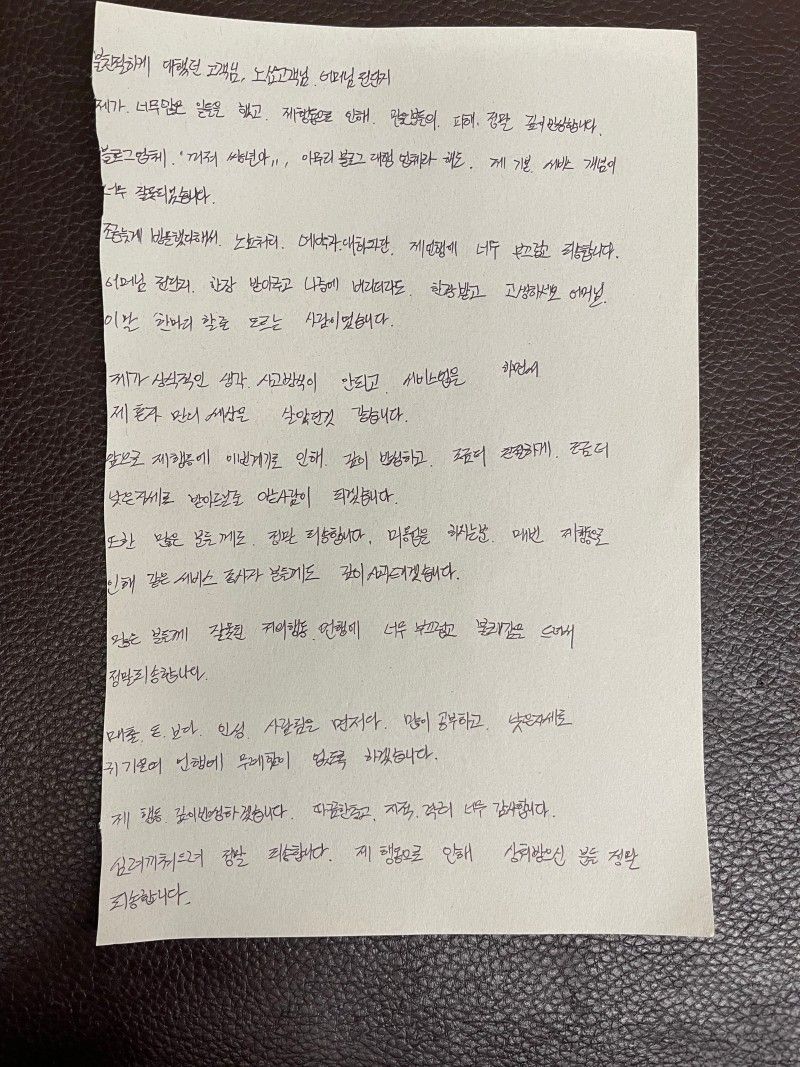 불친절하게 대했던 고객님, 노쇼고객님, 어머님 전단지
제가 너무많은 일들을 했고, 제행동으로 인해, 많은분들의, 피해, 정말 깊이 반성합니다.
블로그업체, '꺼져 쌍년아,,, 아무리 블로그 대행 업체라 해도, 제 기본 서비스 개념이
너무 잘못되었습니다.
조금늦게 방문했다해서, 노쇼처리, 예약과 대화차단, 제언행에 너무 부끄럽고 죄송합니다.
어머님 전단지, 한장 받아주고 나중에 버리더라도, 한장받고 고생하세요 어머님
이말 한마디 할줄 모르는 사람이었습니다.
제가 상식적인 생각, 사고방식이 안되고, 서비스업을 하면서
제 혼자 만의 세상을 살았던것 같습니다.
앞으로 제행동에 이번계기로 인해, 깊이 반성하고, 조금더 친절하게, 조금더
낮은자세로 받아드릴줄 아는사람이 되겠습니다.
또한 많은 분들께도, 정말 죄송합니다, 미용업을 하시는분, 매번 제행동으로
인해 같은 서비스 종사자 분들께도 깊이 사과드리겠습니다.
많은 분들께 잘못된 저의행동, 언행에 너무 부끄럽고 불쾌감을 드려서
정말죄송합니다.
매출, 돈, 보다, 인성, 사람됨을 먼저다, 많이 공부하고, 낮은자세로
귀 기울여 언행에 무례함이 없도록 하겠습니다.
제 행동, 깊이반성하겠습니다. 따끔한충고, 지적, 격려 너무 감사합니다.
심려끼쳐드려 정말 죄송합니다. 제 행동으로 인해 상처받으신 분들 정말
죄송합니다.